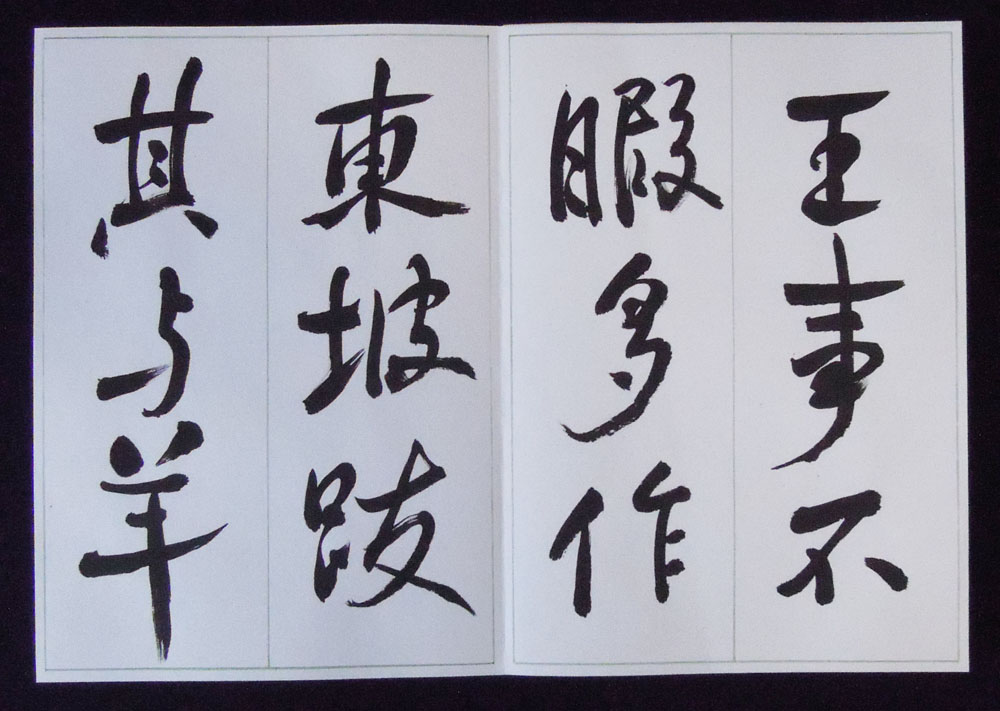 王事不
暇多作
東坡跋
其与羊